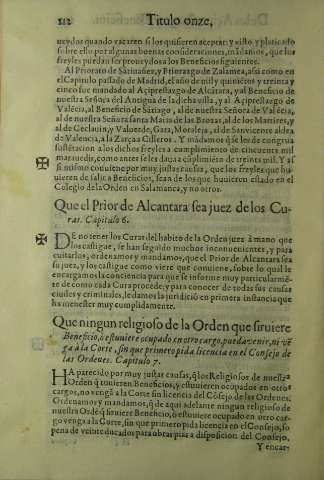 212 Titulo onze,
ueydos quando vacaren si los quisieren aceptar: y visto y platicado
sobre ello por algunas buenas consideraciones, mãdamos, que los
freyles puedan ser proueydos a los Beneficios siguientes.
Al Priorato de Sãtiuañez, y Priorazgo de Zalamea, assi como en
el Capitulo passado de Madrid, el año de mil y quiniẽtos y treinta y
cinco fue mandado al Aciprestazgo de Alcãtara, y al Beneficio de
nuestra Señora del Antigua de la dicha villa, y al Aciprestazgo de
Valẽcia, al Beneficio de Sãtiago, al de nuestra Señora de Valẽcia,
al de nuestra Señora santa Maria de las Brozas, al de los Martires, y
al de Ceclauin, y Valuerde, Gata, Moraleja, al de San vicente aldea
de Valencia, a la Zarça a Cilleros. Y mãdamos q̃ se les de congrua
sustẽtacion a los dichos freyles a cumplimiẽto de cincuenta mil
marauedis, como antes se les daua a cũplimiẽto de treinta mil. Y as
si mismo conuiene por muy justas causas, que los freyles que hu
uieren de salir a Beneficios, sean de los que huuieren estado en el
Colegio de la Orden en Salamanca, y no otros.
Que el Prior de Alcantara sea juez de los Cu-
ras. Capitulo 6.
DE no tener los Curas del habito de la Orden juez à mano que
los castigue, se han seguido muchos inconuenientes, y para
euitarlos, ordenamos y mandamos, que el Prior de Alcantara sea
su juez, y los castigue como viere que conuiene, sobre lo qual le
encargamos la conciencia para que se informe muy particularmẽ-
te de como cada Cura procede; y para conocer de todas sus causas
ciuiles y criminales, le damos la juridicion en primera instancia que
ha menester muy cumplidamente.
Que ningun religioso de la Orden que siruiere
Beneficio, ò estuuiere ocupado en otro cargo, pueda venir, ni vẽ-
ga à la Corte, sin que primero pida licencia en el Consejo de
las Ordenes. Capitulo 7.
HA parecido por muy justas causas, q̃ los Religiosos de nuestra
Orden q̃ tuuieren Beneficios, y estuuieren ocupados en otros
cargos, no venga a la Corte sin licencia del Cõsejo de las Ordenes.
Ordenamos y mandamos, q̃ de aqui adelante ningun religioso de
nuestra Ordẽ, q̃ siruiere Beneficio, ò estuuiere ocupado en otro car
go venga a la Corte, sin que primero pida licencia en el Consejo, so
pena de veinte ducados para obras pias a disposicion del Consejo.
Y encar-